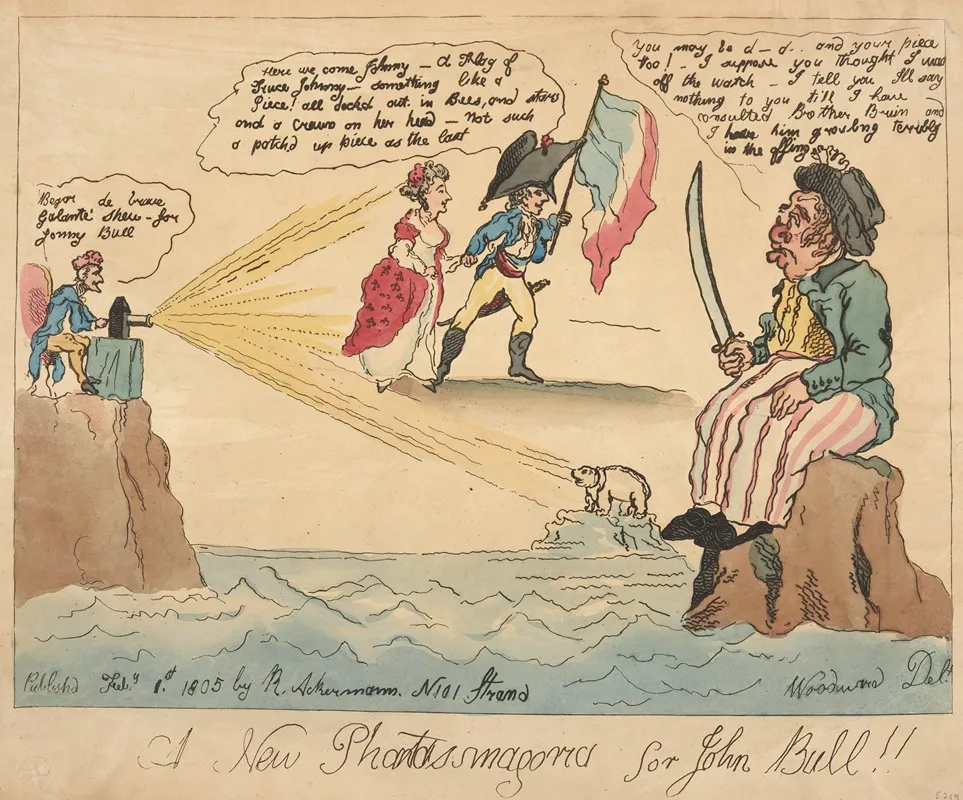 Begar de brave
Galante shew - for
Jonny Bull
Here we come Johnny - A Flag of
Truce Johnny - something like a
Piece! all decked out in Bees, and stars
and a crown on her head - Not such
a patch'd up piece as the last
You may be d-d.. and your piece
too! - I suppose you thought I was
off the watch - I tell you I'll say
nothing to you till I have
consulted Brother Bruin and
I hear him growling terribly
in the offing
Publishd Feby 1st 1805 by R. Ackermann. N101 Strand
Woodward Delt
A New Phantasmagoria for John Bull!!